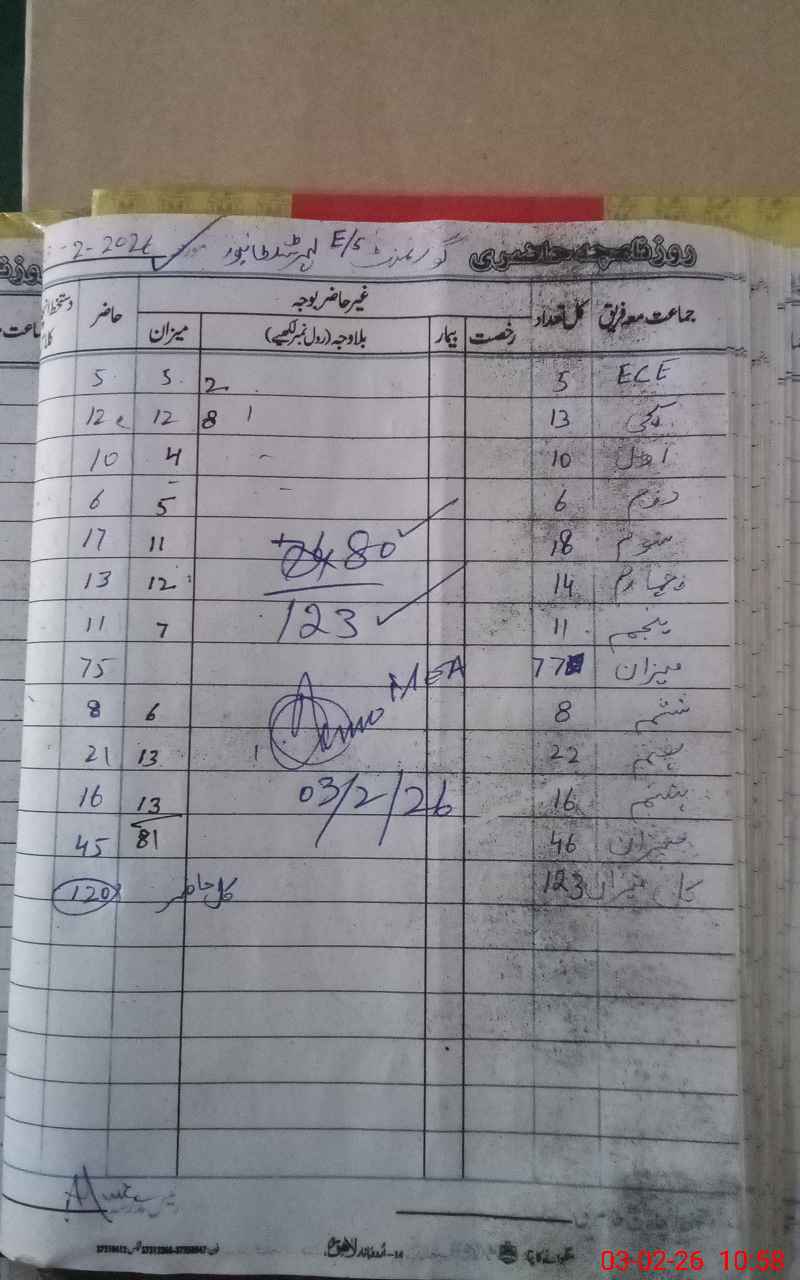 روزنامچہ حاضری گورنمنٹ E/S -2-2026
جماعت معہ فریق کل تعداد غیر حاضر بوجہ حاضر
رخصت بیمار بلاوجہ (رول نمبر لکھیے) میزان
ECE 5 2 5 5
پکی 13 1 8 12 12
اول 10 - 4 10
دوم 6 - 5 6
سوم 18 11 17
چہارم 14 12 13
پنجم 11 7 11
میزان 77 75
ششم 8 6 8
ہفتم 22 1 13 21
ہشتم 16 13 16
میزان 46 81 45
کل میزان 123 کل حاضر 120
80
123
MEA
03/2/26
03-02-26 10:58